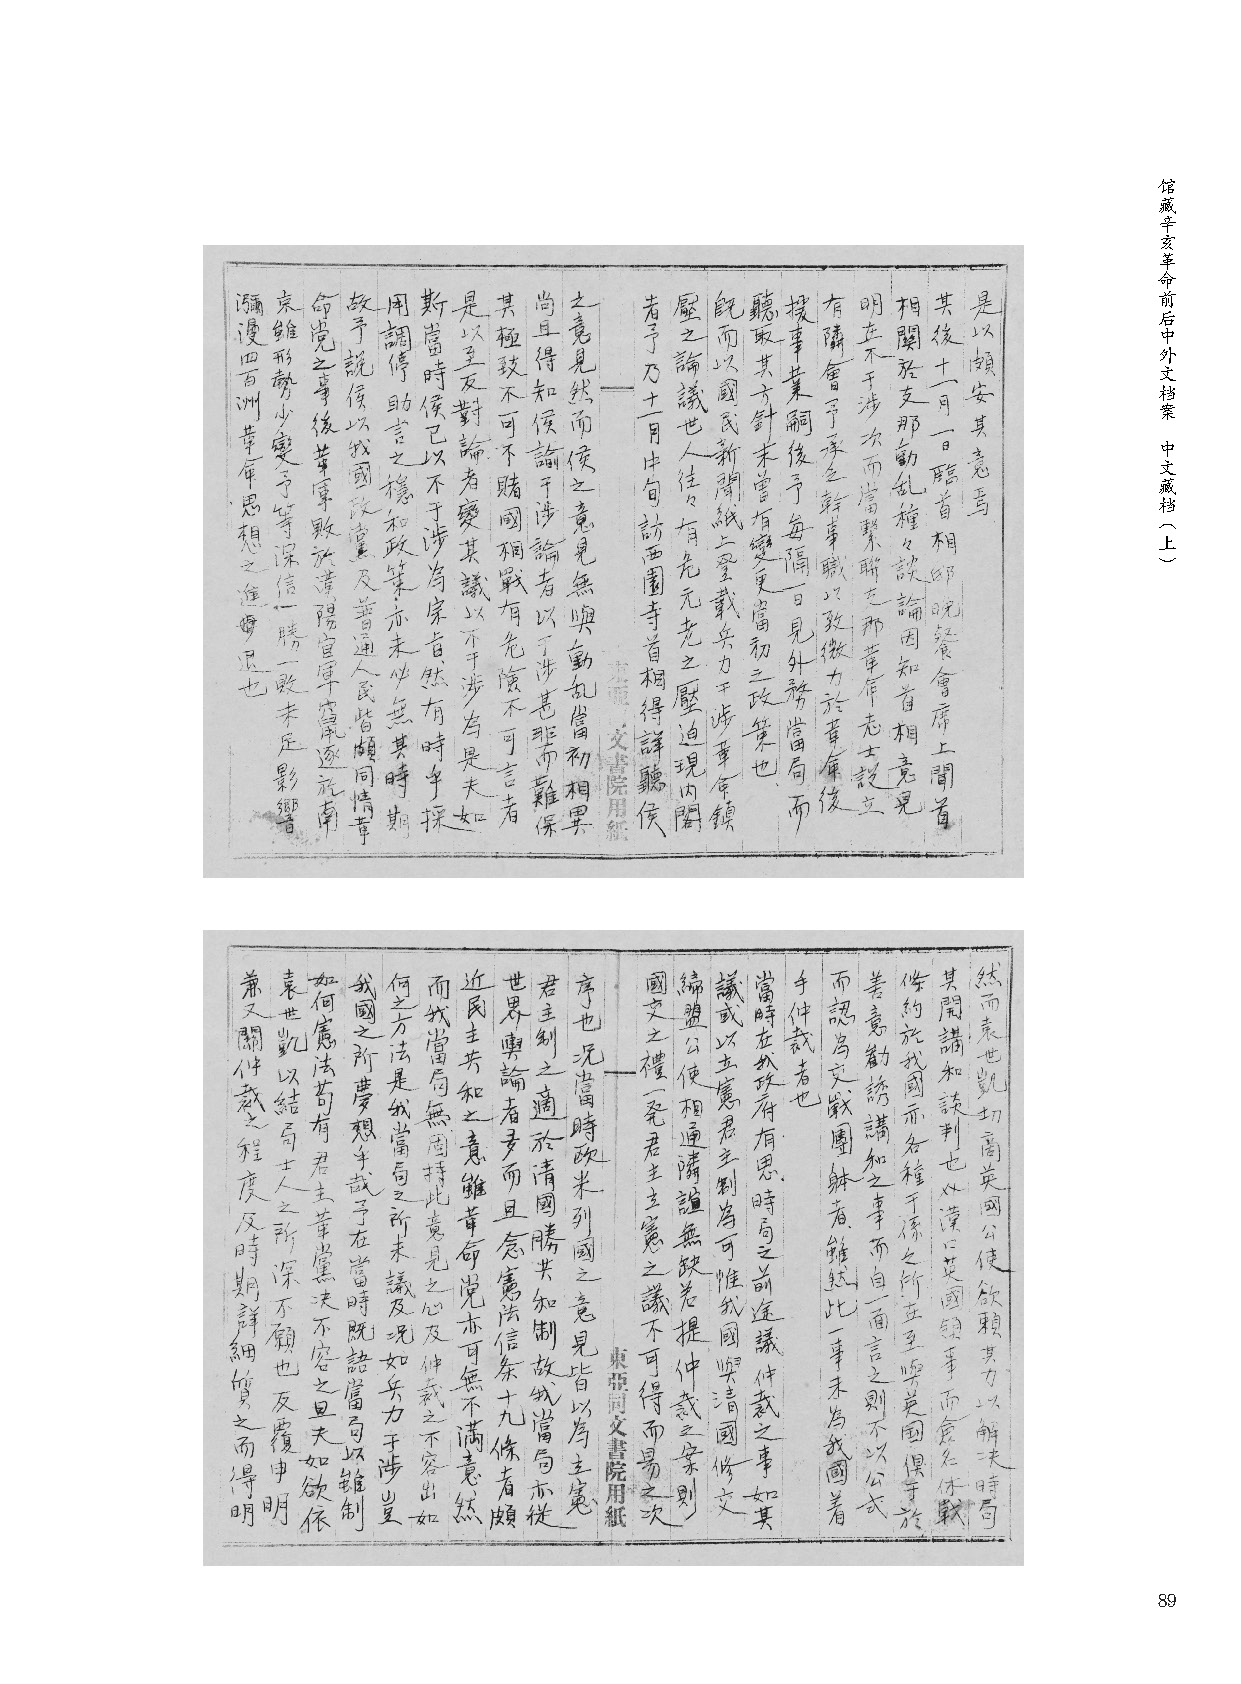 馆藏辛亥革命前后中外文档案 中文藏档(上)
是以頗安其意焉
其後十一月一日臨首相邸晚餐會席上聞首
相關於支那動乱種々談論因知首相意見
明在不干涉次而當繫聯支那革命志士設立
有隣會予承乏幹事職以致微力於革命後
援事業嗣後予每隔一日見外務當局而
聽取其方針未曾有變更當初之政策也
既而以國民新聞紙上登載兵力干涉革命鎮
壓之論議世人往々有危元老之壓迫現內閣
者予乃十一月中旬訪西園寺首相得詳聽侯
之意見然而侯之意見無與動乱當初相異
尚且得知侯諭干涉論者以干涉甚非而難保
其極致不可不賭國相戰有危險不可言者
是以至反對論者變其議以不干涉為是夫如
斯當時侯已以不干涉為宗旨然有時乎採
用調停助言之穩和政策亦未必無其時期
故予說侯以我國政黨及普通人民皆頗同情革
命党之事後革軍敗於漢陽官軍竄逐於南
京雖形勢少變予等深信一勝一敗未足影響
瀰漫四百洲革命思想之進退也
東亞同文書院用紙
然而袁世凱切商英國公使欲賴其力以解決時局
其開講和談判也以漢口英國領事而愈名休戰
條約於我國亦各種干係之所在至與英国俱于於
善意勸誘講和之事而自一面言之則不以公式
而認為交戰團躰者雖然此一事未為我國着
手仲裁者也
當時在我政府有思時局之前途議仲裁之事如其
議或以立憲君主制為可惟我國與清國修交
締盟公使相通隣誼無缺若提仲裁之案則
國交之禮一発君主立憲之議不可得而易之次
序也况當時欧米列國之意見皆以為立憲
君主制之適於清國勝共和制故我當局亦從
世界輿論者多而且念憲法信条十九條者頗
近民主共和之意雖革命党亦可無不滿意然
而我當局無固持此意見之心及仲裁之不容出如
何之方法是我當局之所未議及况如兵力干涉豈
我國之所夢想乎哉予在當時既語當局以雖制
如何憲法苟有君主革黨决不容之且夫如欲依
袁世凱以結局士人之所深不願也反覆申明
兼又關仲裁之程度及時期詳細質之而得明
東亞同文書院用紙
89